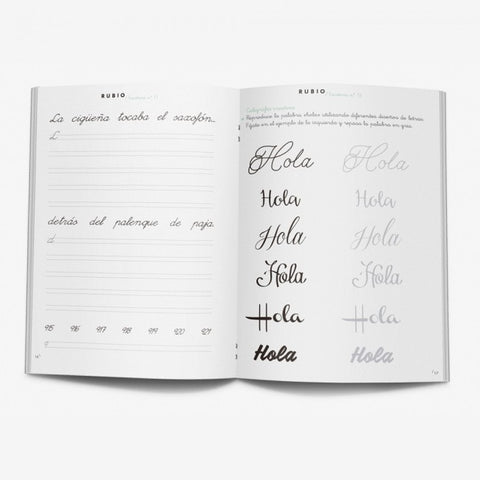 RUBIO
La cigüeña tocaba el saxofón...
L
detrás del palenque de paja.
d
915 916 917 918 919 920 921
9
RUBIO
Caligrafía creativa
Reproduce la palabra «hola» utilizando diferentes diseños de letras.
Fíjate en el ejemplo de la izquierda y repasa la palabra en gris.
Hola Hola
Hola Hola
Hola Hola
Hola Hola
Hola Hola
Hola Hola